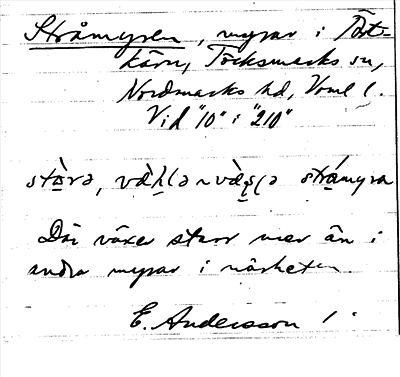 Stråmyren, myrar i Töst-
kärn, Töcksmarks sn,
Nordmarks hd, Vrml l.
Vid "10" i "210"
stråmyra
Där växer starr mer än i
andra myrar i närheten.
E. Andersson